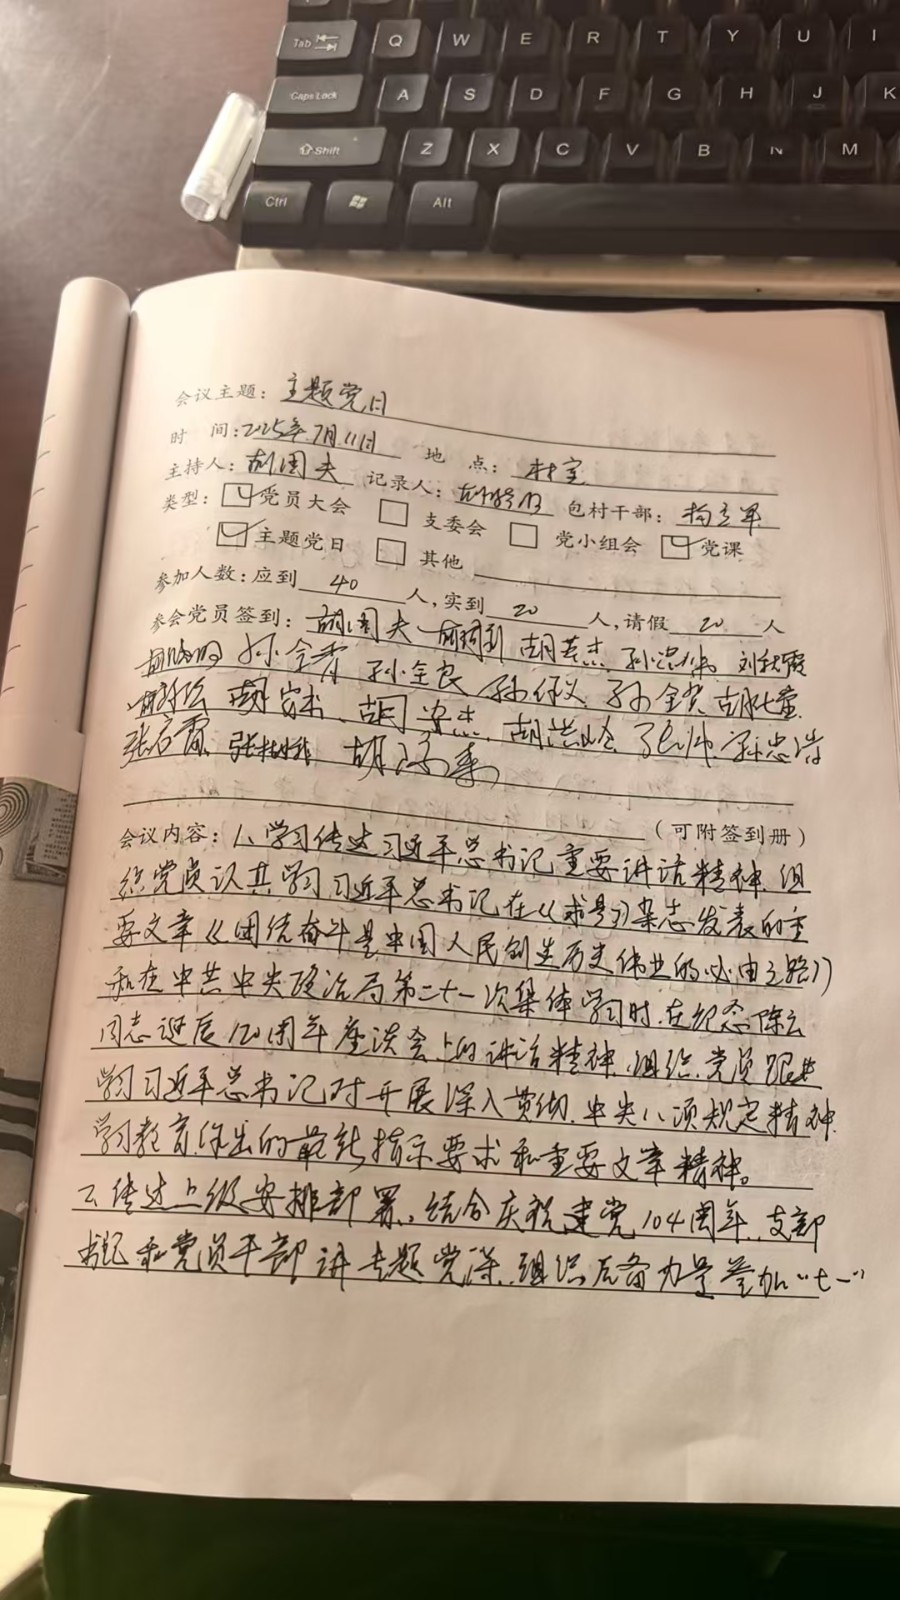 Tab Q W E R T Y U I
Caps Lock A S D F G H J K
Shift Z X C V B N M
Ctrl Alt
会议主题：主题党日
时 间：2025年7月11日 地 点：村室
主持人：胡周夫 记录人： 包村干部：
类型：党员大会 支委会 党小组会 党课
主题党日 其他
参加人数：应到 40 人，实到 20 人，请假 20 人
参会党员签到：胡周夫
孙全秀 孙全良 孙仪义
胡洪岭 孙忠诰
张石雷
（可附签到册）
会议内容：1、学习传达习近平总书记重要讲话精神，组
织党员认真学习习近平总书记在《求是》杂志发表的重
要文章《团结奋斗是中国人民创造历史伟业的必由之路》
和在中共中央政治局第二十一次集体学习时、在纪念陈云
同志诞辰120周年座谈会上的讲话精神，组织党员跟进
学习习近平总书记对开展深入贯彻中央八项规定精神
学习教育作出的最新指示要求和重要文章精神。
2、传达上级安排部署。结合庆祝建党104周年，支部
书记和党员干部讲专题党课，组织后备力量参加“七一”